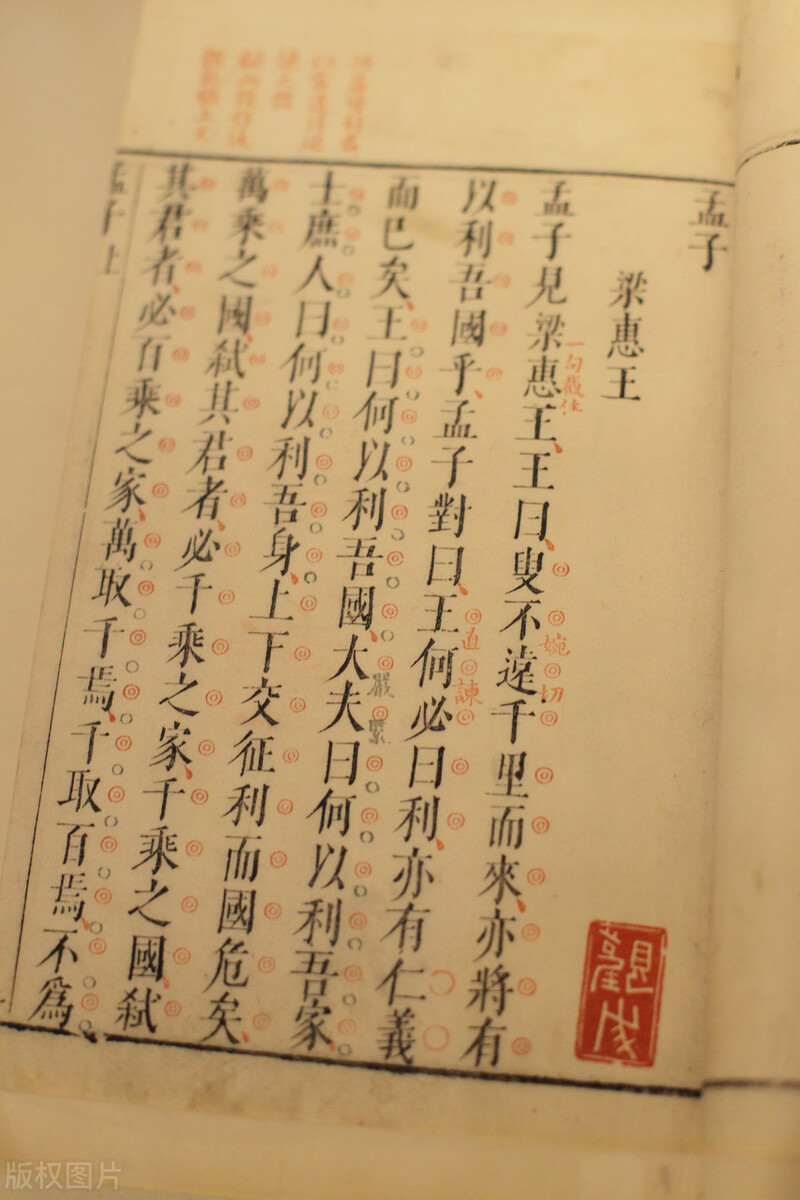 孟子
梁惠王
孟子見梁惠王、王曰、叟不遠千里而來、亦將有
一句截住
婉切
以利吾國乎、孟子對曰、王何必曰利、亦有仁義
直諫
而已矣、王曰何以利吾國、大夫曰何以利吾家、
嚴緊
士庶人曰何以利吾身、上下交征利而國危矣、
萬乘之國、弒其君者、必千乘之家、千乘之國、弒
其君者、必百乘之家、萬取千焉、千取百焉、不為
孟子上
版权图片